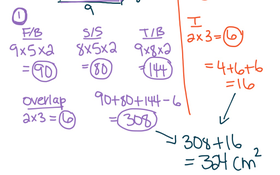 9
①
F/B
9×5×2
= 90
S/S
8×5×2
= 80
T/B
9×8×2
= 144
Overlap
2×3 = 6
90+80+144-6
= 308
I
2×3 = 6
= 4+6+6
= 16
308+16
= 324 cm²